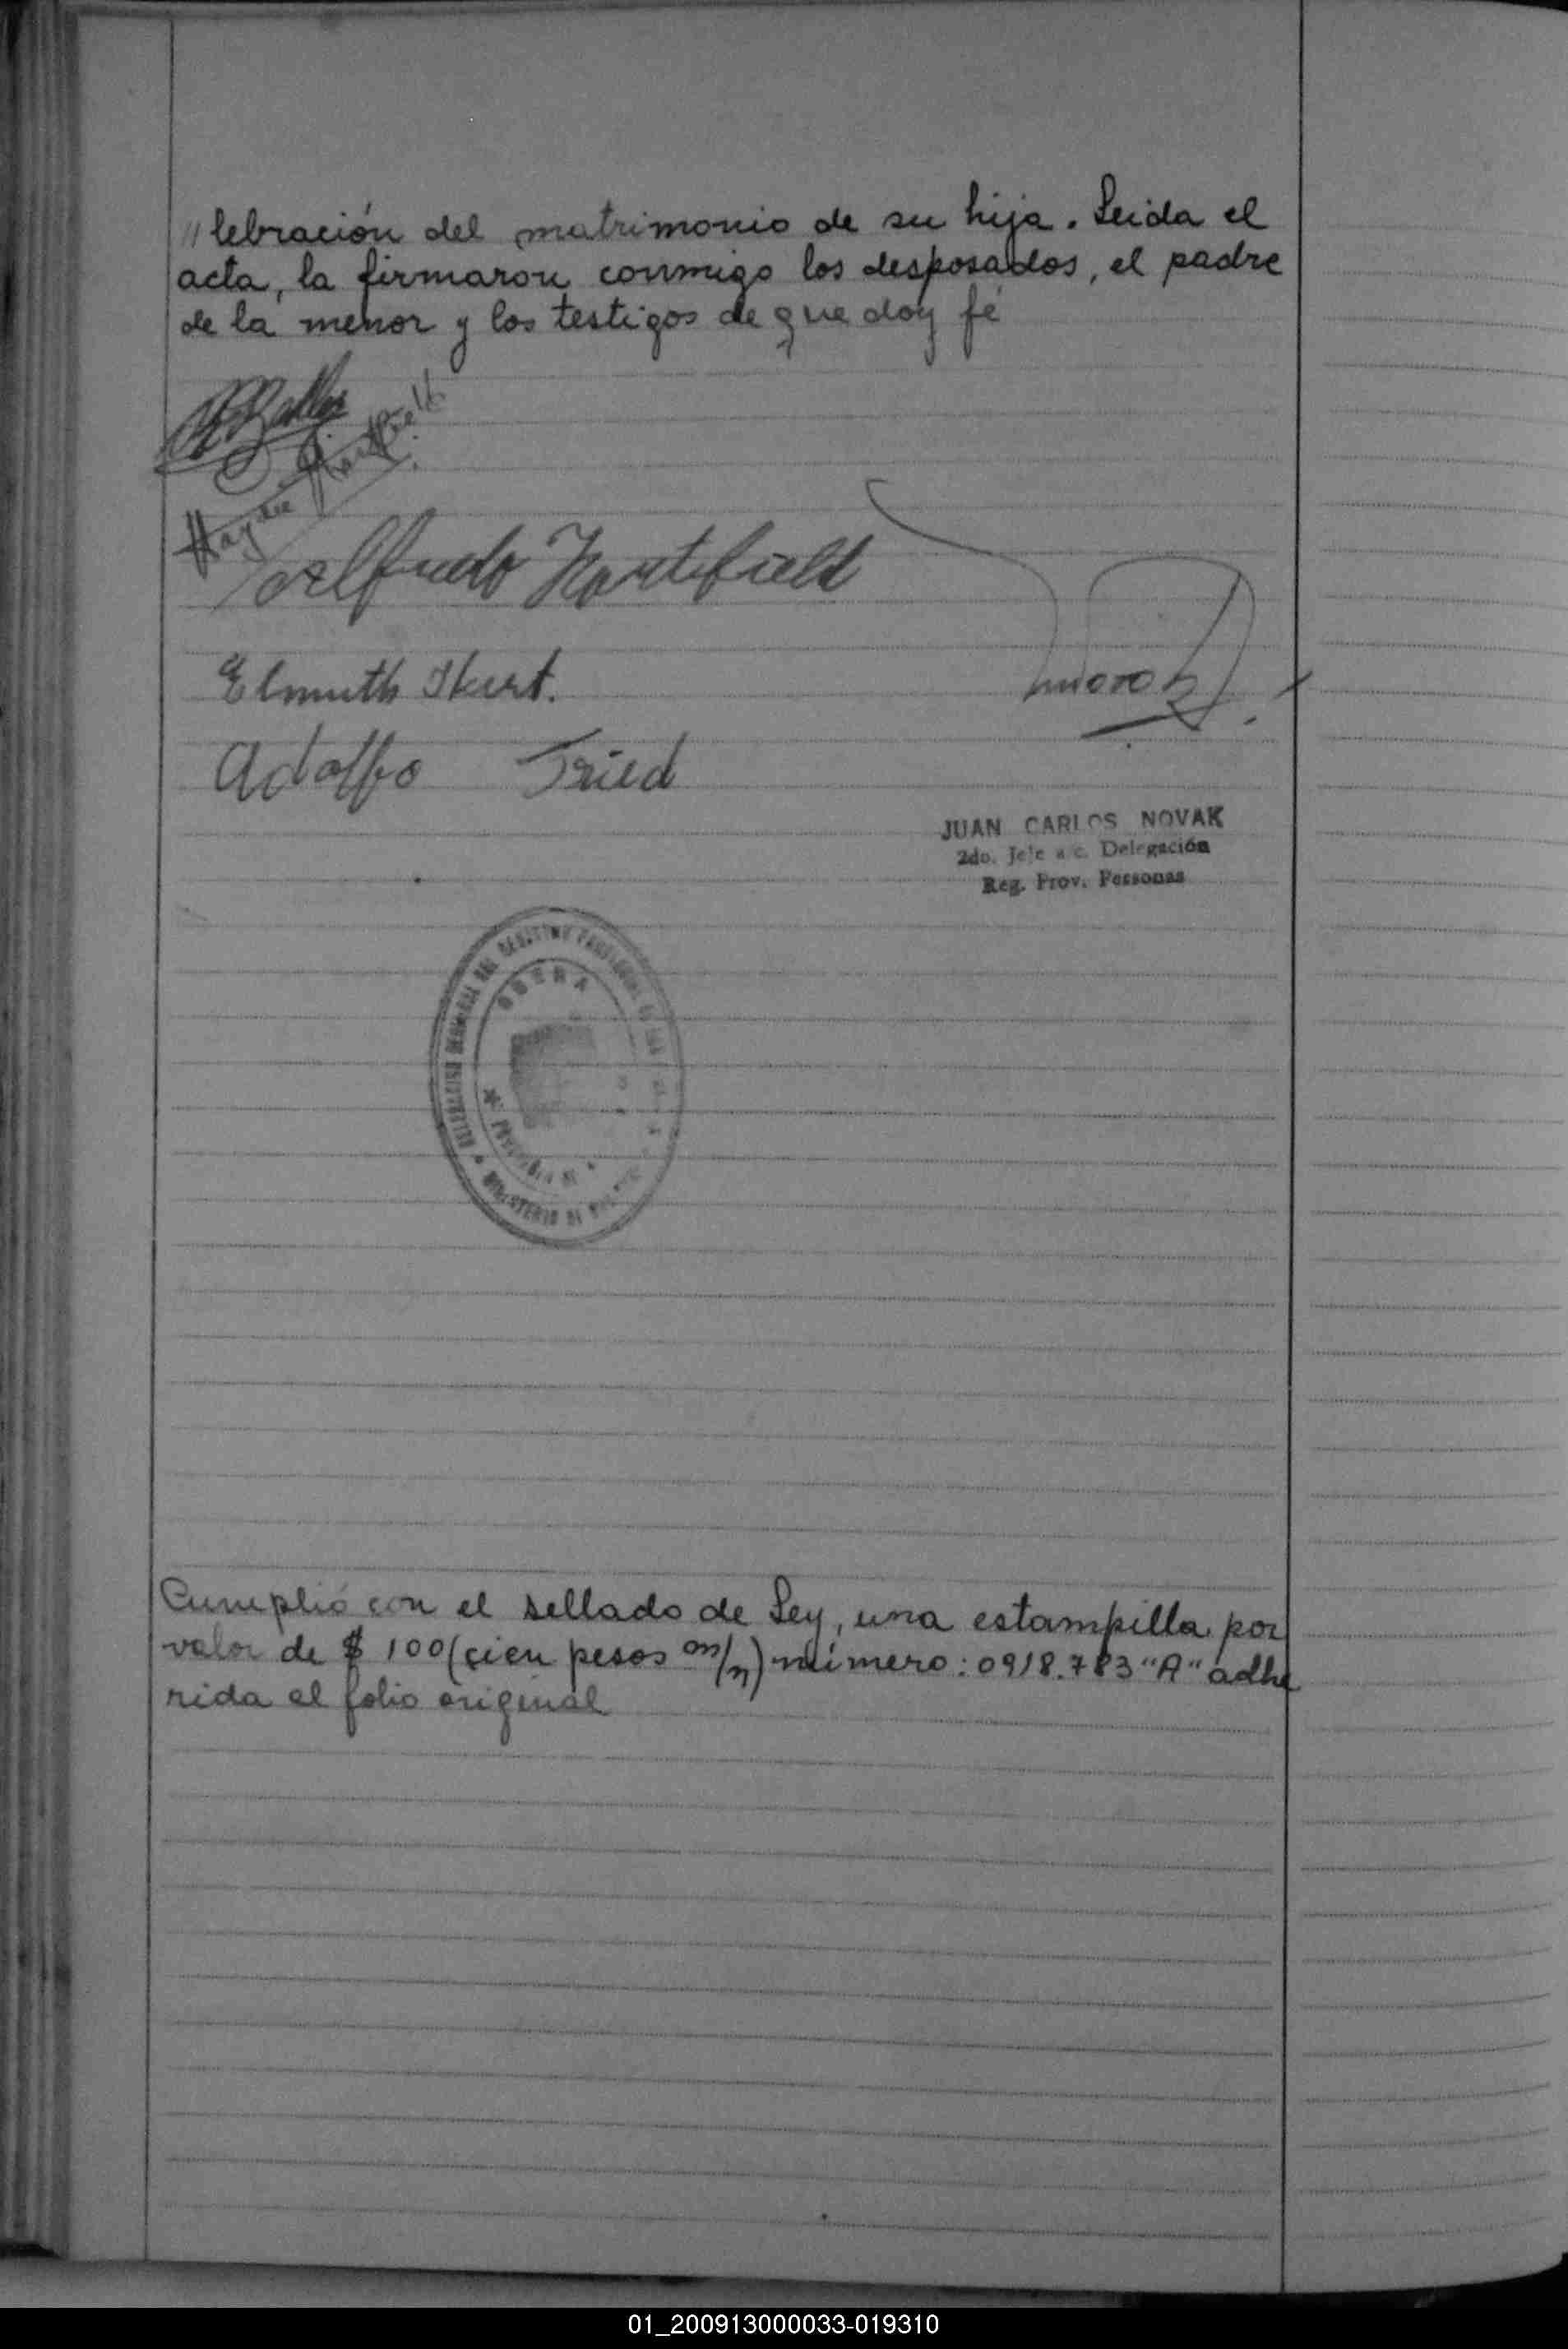 // lebración del matrimonio de su hija. Leida el
acta, la firmaron conmigo los desposados, el padre
de la menor y los testigos de que doy fé
Haydee
Alfredo
Elmuth
Adolfo Fried
JUAN CARLOS NOVAK
2do. Jefe a c. Delegación
Reg. Prov. Personas
OBERA
MINISTERIO DE
Cumplió con el sellado de Ley, una estampilla por
valor de $ 100 (cien pesos m/n) número: 0918.783 "A" adhe
rida al folio original
01_200913000033-019310